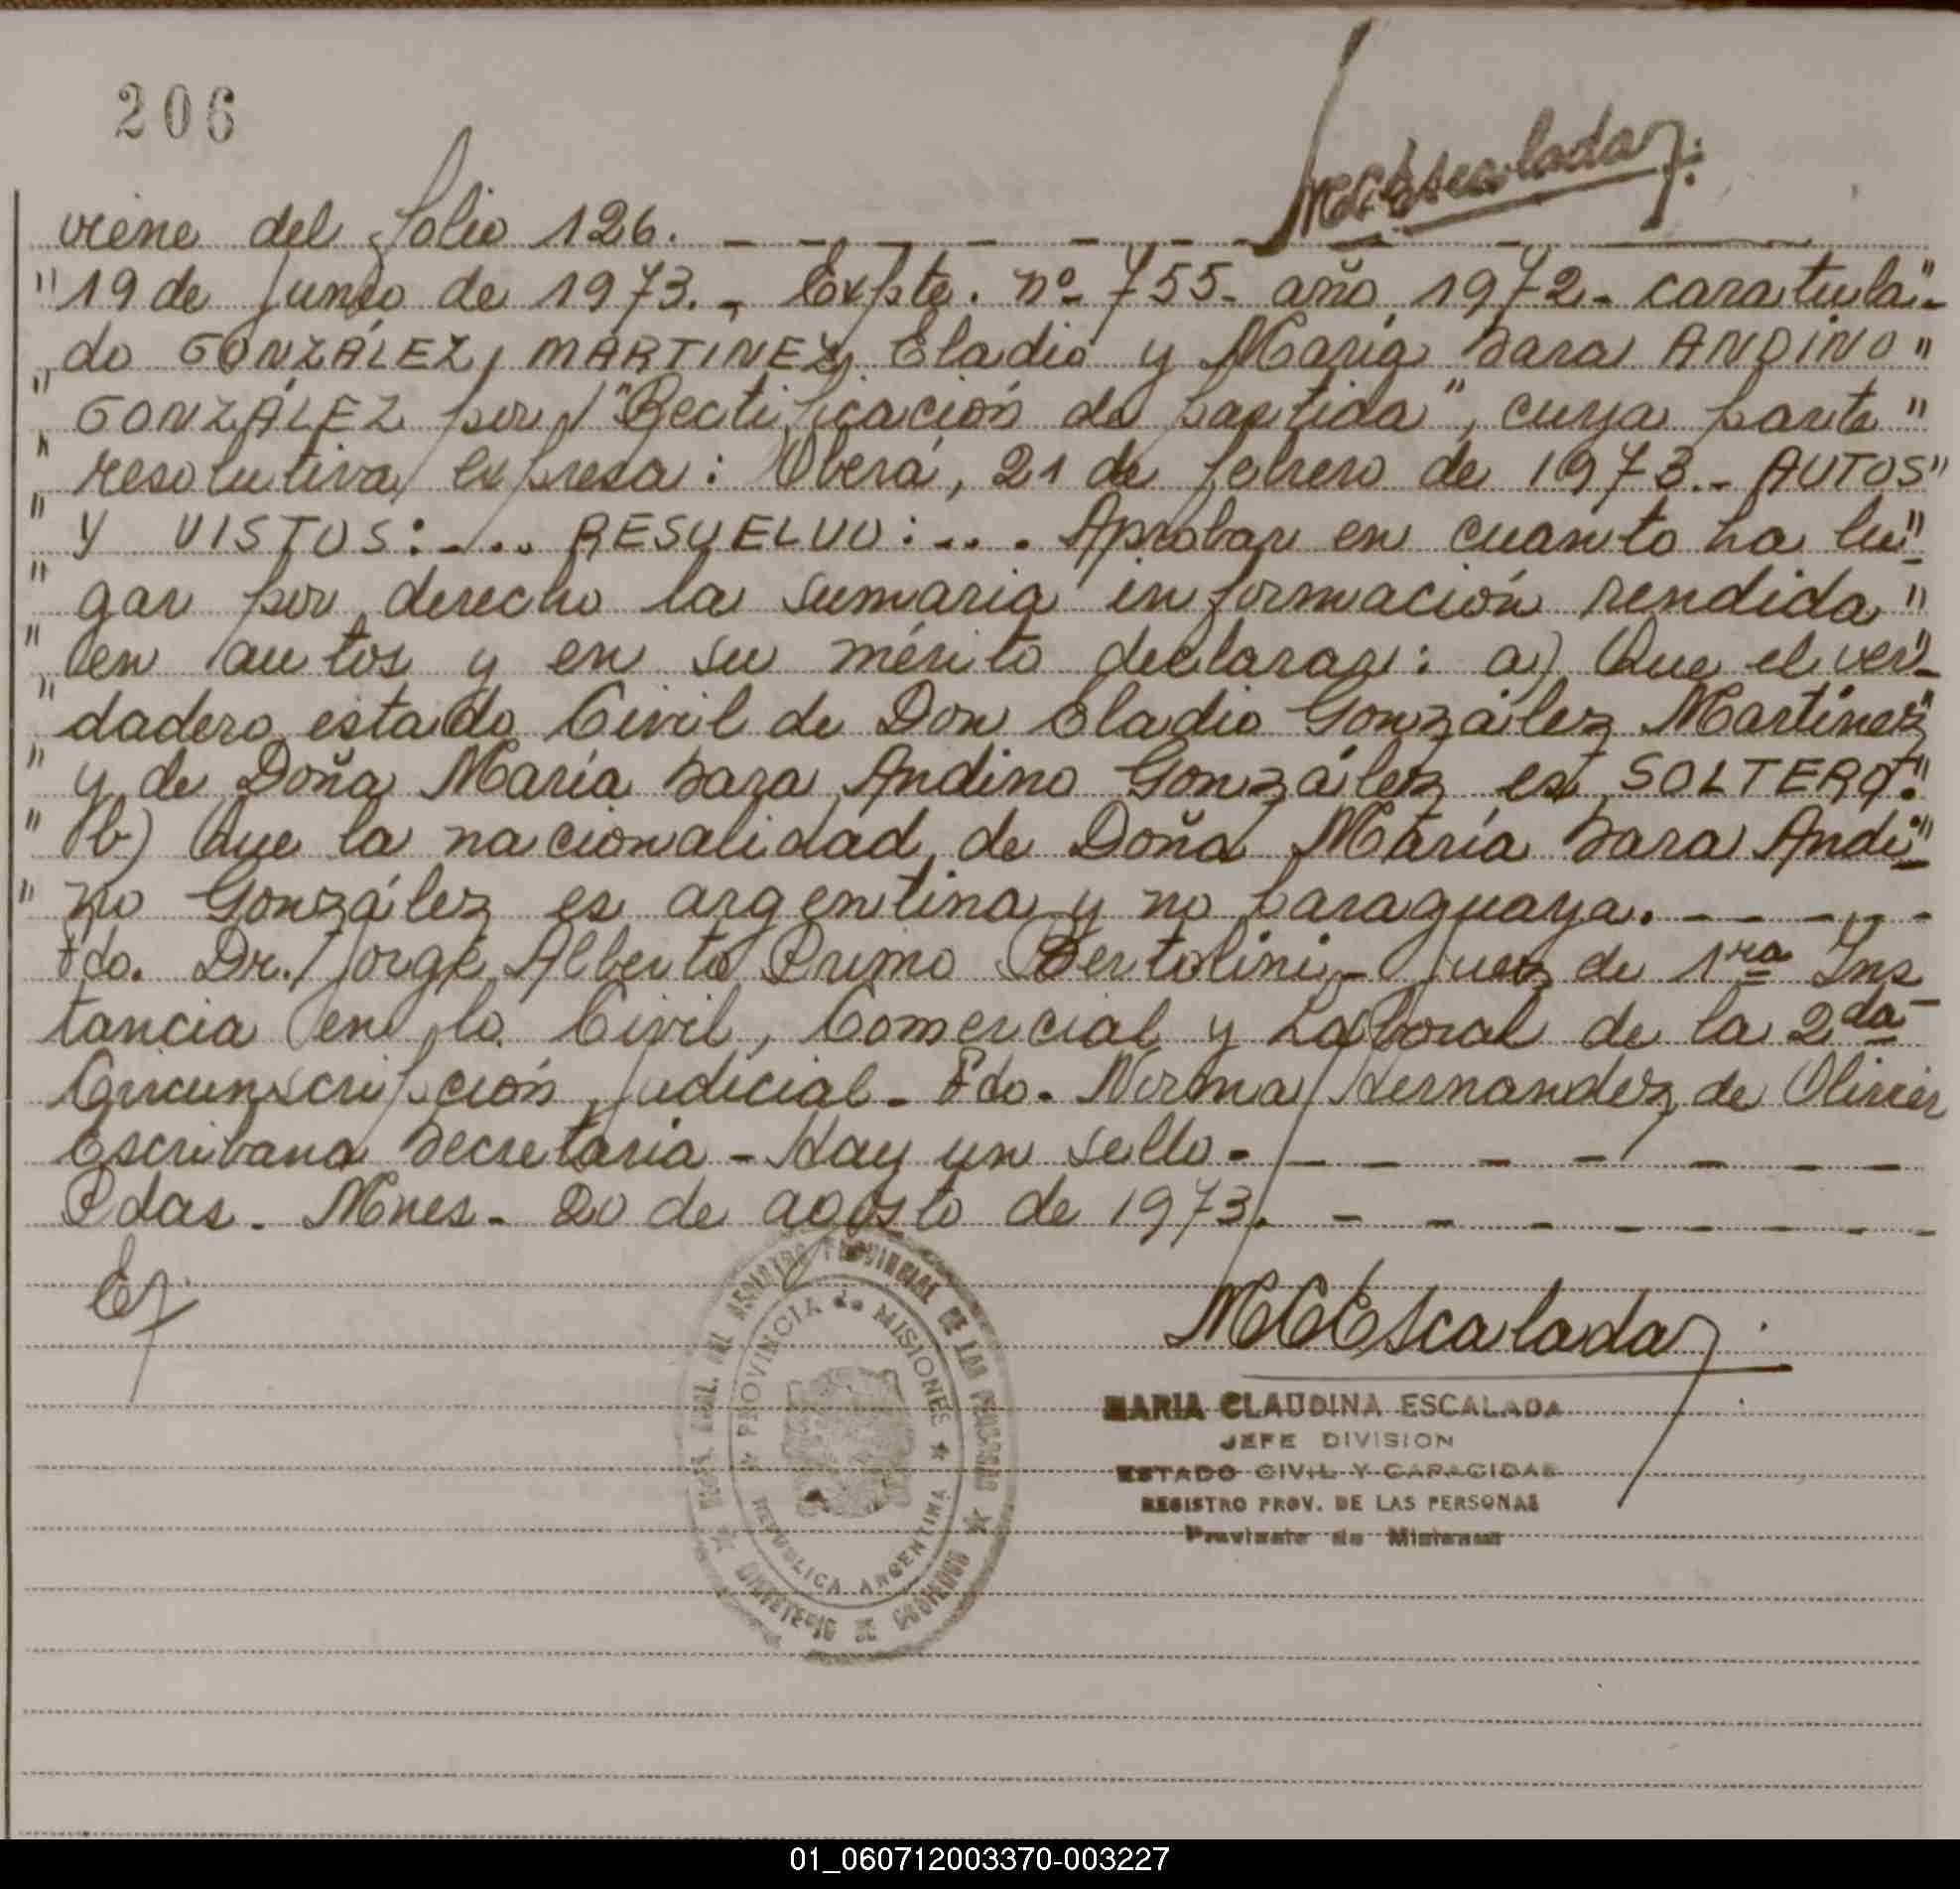 206
MCEscalada
viene del folio 126. - - - - - - - - -
"19 de junio de 1973.- Expte. nº 755- año 1972- caratula"-
do GONZÁLEZ, MARTINEZ, Eladio y María Sara ANDINO"
" GONZÁLEZ por "Rectificación de partida", cuya parte"
" resolutiva expresa: Oberá, 21 de febrero de 1973.- AUTOS"
" Y VISTOS:.... RESUELVO:.... Aprobar en cuanto ha lu"-
" gar por derecho la sumaria información rendida"
" en autos y en su mérito declarar: a) Que el ver"-
" dadero estado Civil de Don Eladio González Martinez"
" y de Doña María Sara Andino González es SOLTERO."
" b) Que la nacionalidad de Doña María Sara Andi"-
" no González es argentina y no paraguaya. - - - - -
Fdo. Dr. Jorge Alberto Primo Bertolini- Juez de 1ra Ins
tancia en lo Civil, Comercial y Laboral de la 2da-
Circunscripción Judicial- Fdo. Norma Hernandez de Olivier
Escribana Secretaria - Hay un sello - - - - - - - - -
Pdas. Mnes- 20 de agosto de 1973. - - - - - - - -
MCEscalada
MARIA CLAUDINA ESCALADA
JEFE DIVISION
ESTADO CIVIL Y CAPACIDAD
REGISTRO PROV. DE LAS PERSONAS
Provincia de Misiones
REGISTRO PROVINCIAL DE LAS PERSONAS
PROVINCIA de MISIONES
REPUBLICA ARGENTINA
MINISTERIO DE GOBIERNO
01_060712003370-003227